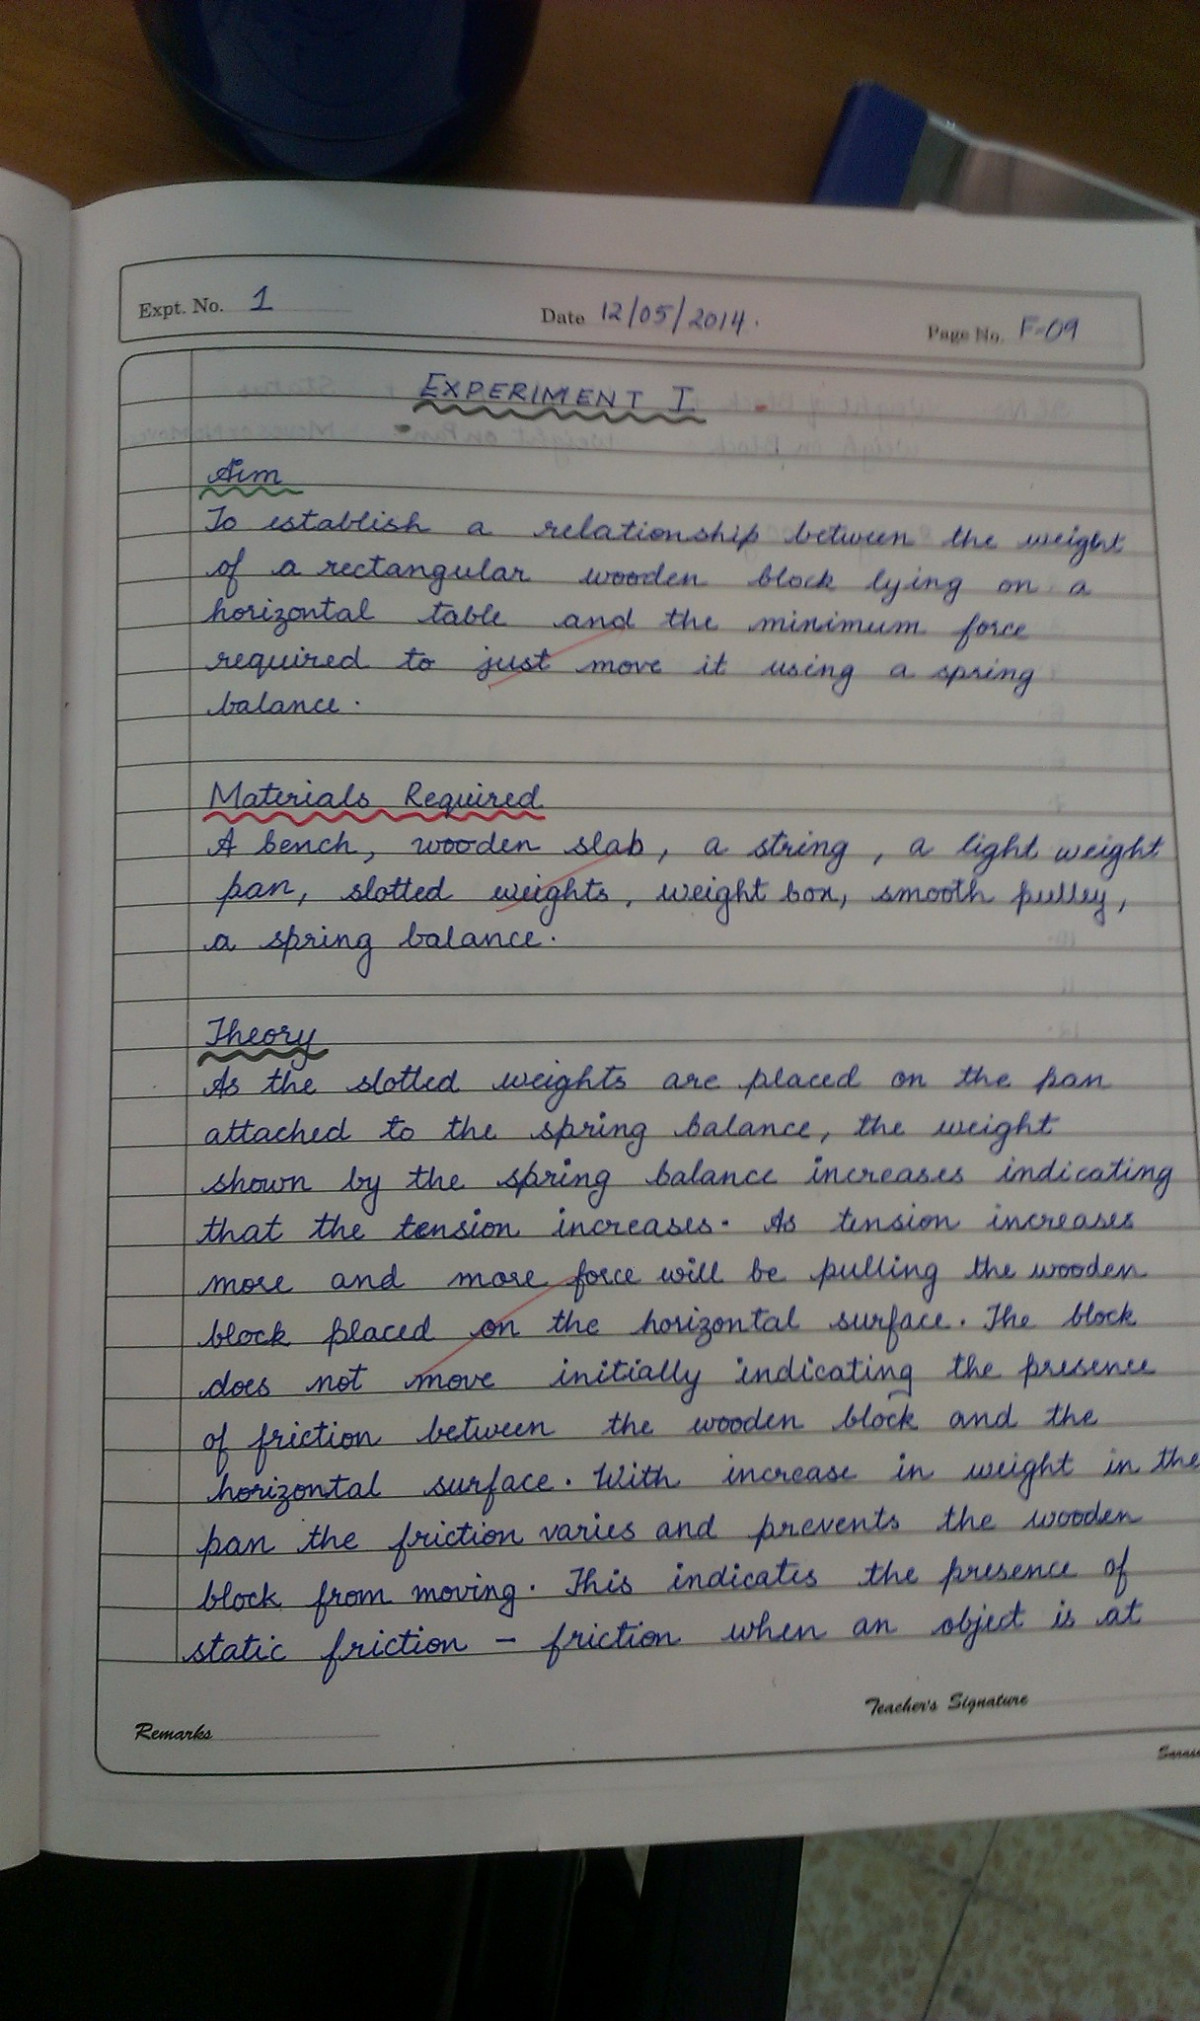 Expt. No. 1 Date 12/05/2014. Page No. F-09
EXPERIMENT I
Aim
To establish a relationship between the weight
of a rectangular wooden block lying on a
horizontal table and the minimum force
required to just move it using a spring
balance.
Materials Required
A bench, wooden slab, a string, a light weight
pan, slotted weights, weight box, smooth pulley,
a spring balance.
Theory
As the slotted weights are placed on the pan
attached to the spring balance, the weight
shown by the spring balance increases indicating
that the tension increases. As tension increases
more and more force will be pulling the wooden
block placed on the horizontal surface. The block
does not move initially indicating the presence
of friction between the wooden block and the
horizontal surface. With increase in weight in the
pan the friction varies and prevents the wooden
block from moving. This indicates the presence of
static friction – friction when an object is at
Teacher's Signature
Remarks